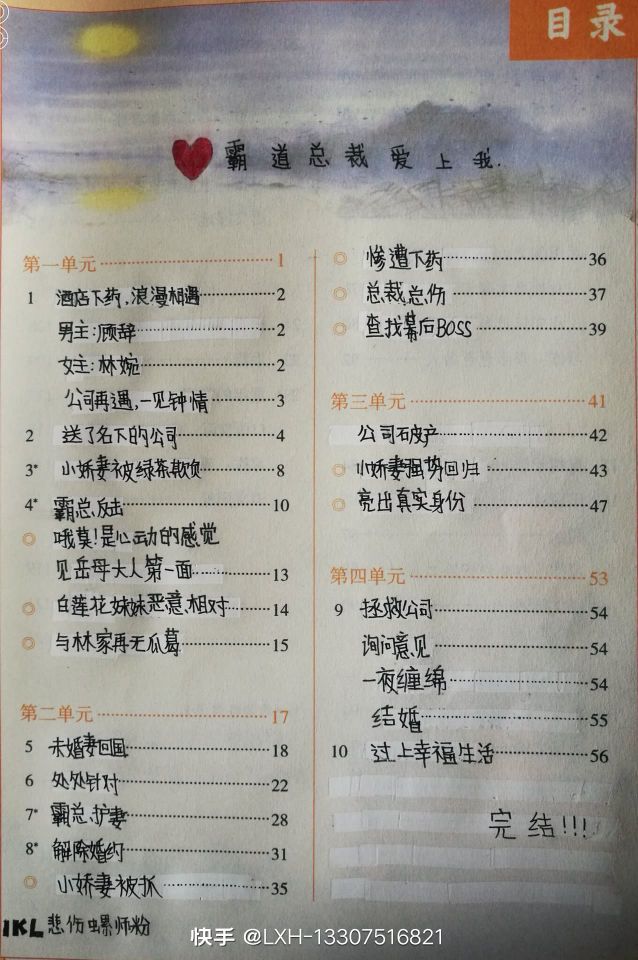 目录
霸道总裁爱上我.
第一单元 1
1 酒店下药,浪漫相遇 2
男主:顾辞 2
女主:林婉 2
公司再遇,一见钟情 3
2 送了名下的公司 4
3* 小娇妻被绿茶欺负 8
4* 霸总反击 10
◎ 哦莫!是心动的感觉
见岳母大人第一面 13
◎ 白莲花妹妹恶意相对 14
◎ 与林家再无瓜葛 15
第二单元 17
5 未婚妻回国 18
6 处处针对 22
7* 霸总护妻 28
8* 解除婚约 31
◎ 小娇妻被抓 35
◎ 惨遭下药 36
◎ 总裁总伤 37
◎ 查找幕后BOSS 39
第三单元 41
公司破产 42
◎ 小娇妻强势回归 43
◎ 亮出真实身份 47
第四单元 53
9 拯救公司 54
询问意见 54
一夜缠绵 54
结婚 55
10 过上幸福生活 56
完结!!!
1KL 悲伤螺师粉
快手 @LXH-13307516821